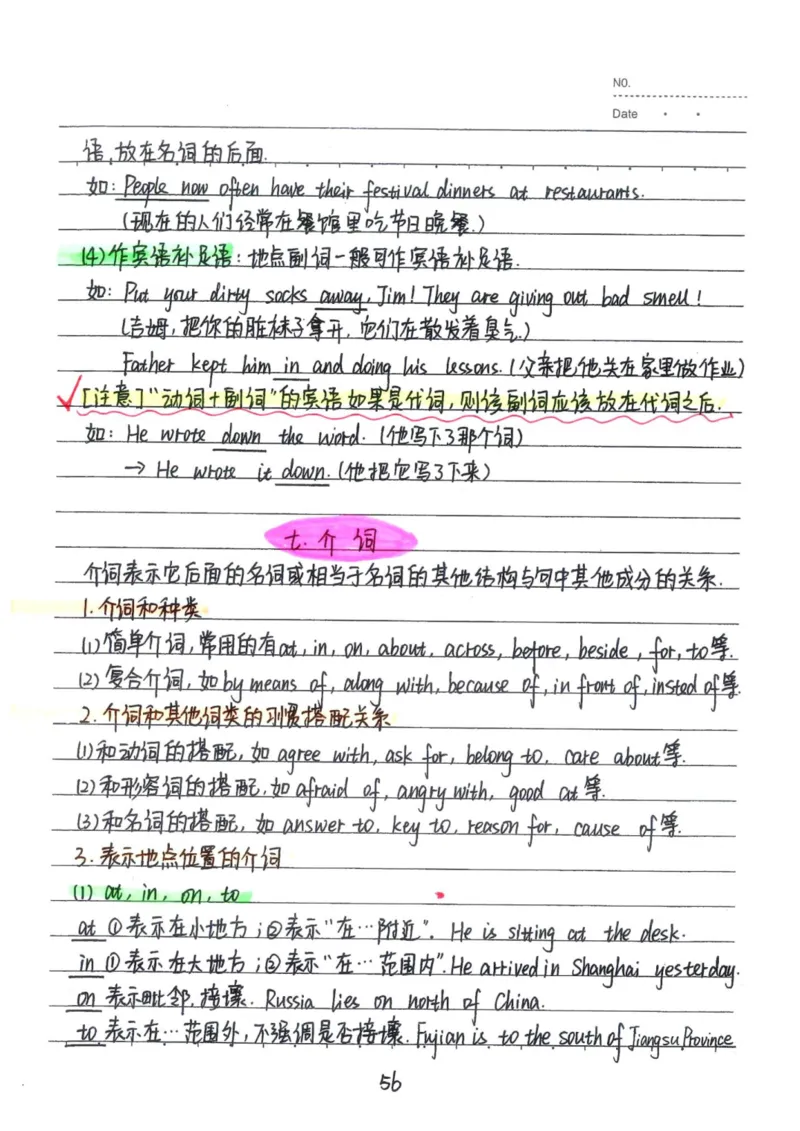 NO.
Date
语,放在名词的后面.
如: People now often have their festival dinners at restaurants.
(现在的人们经常在餐馆里吃节日晚餐.)
(4)作宾语补足语:地点副词一般可作宾语补足语.
如: Put your dirty socks away, Jim! They are giving out bad smell!
(吉姆,把你的脏袜子拿开,它们在散发着臭气.)
Father kept him in and doing his lessons. (父亲把他关在家里做作业)
[注意]"动词+副词"的宾语如果是代词,则该副词应该放在代词之后.
如: He wrote down the word. (他写下了那个词)
→ He wrote it down. (他把它写了下来)
七.介词
介词表示它后面的名词或相当于名词的其他结构与句中其他成分的关系.
1.介词和种类
(1)简单介词,常用的有at, in, on, about, across, before, beside, for, to等.
(2)复合介词,如by means of, along with, because of, in front of, insted of等.
2.介词和其他词类的习惯搭配关系
(1)和动词的搭配,如 agree with, ask for, belong to, care about等.
(2)和形容词的搭配,如afraid of, angry with, good at等.
(3)和名词的搭配,如 answer to, key to, reason for, cause of等.
3.表示地点位置的介词
(1) at, in, on, to
at ①表示在小地方;②表示"在…附近". He is sitting at the desk.
in ①表示在大地方;②表示"在…范围内". He arrived in Shanghai yesterday.
on 表示毗邻,接壤. Russia lies on north of China.
to 表示在…范围外,不强调是否接壤. Fujian is to the south of Jiangsu Province
56